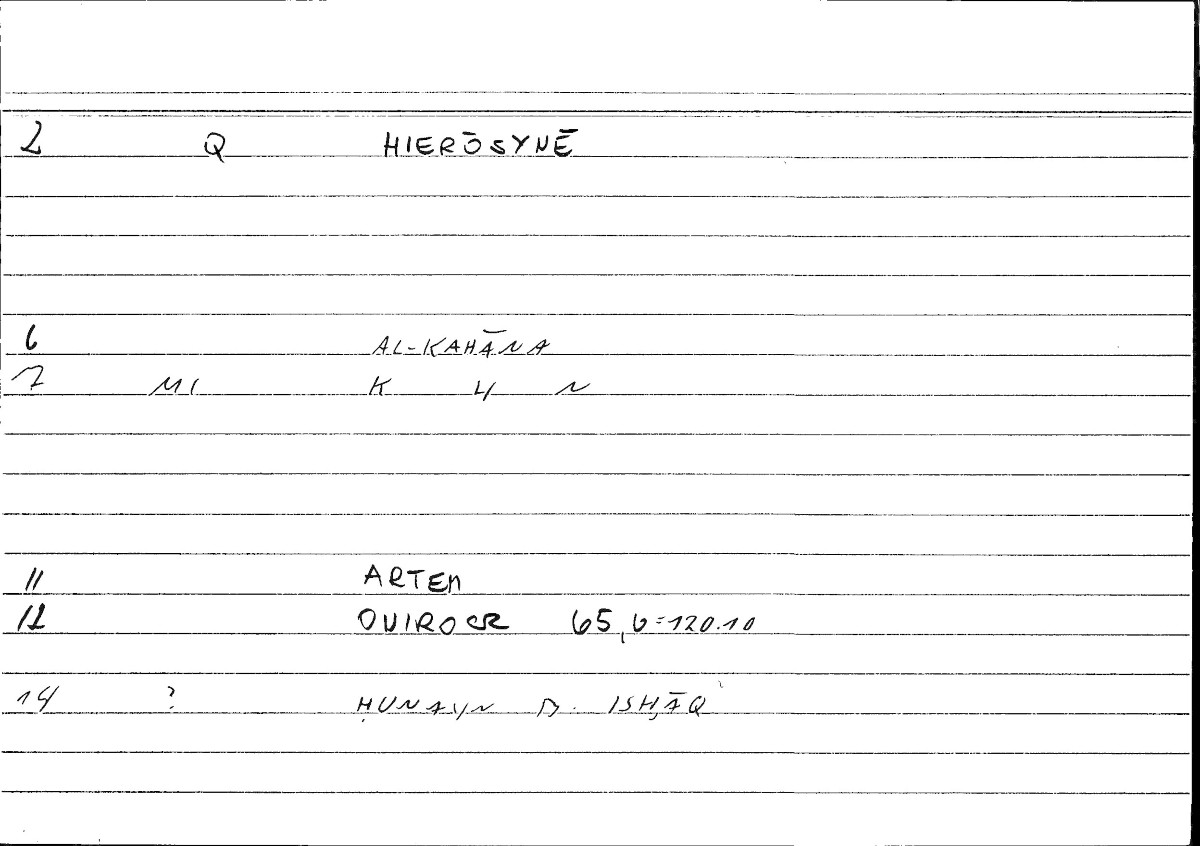 2 Q HIERŌSYNĒ
6 AL-KAHĀNA
7 M1 K 4 N
11 ARTEM
12 OVIROCR 65,6=120.10
14 ? ḤUNAYN B. ISḤĀQ